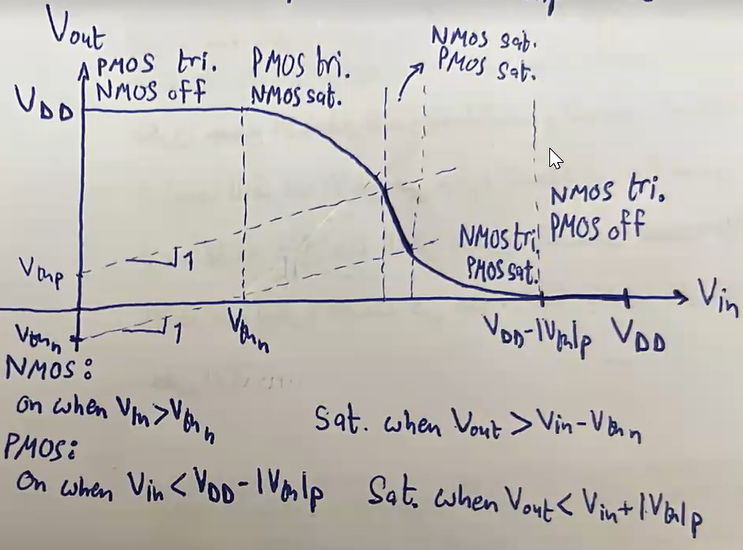 Vout
PMOS tri.
NMOS off
PMOS tri.
NMOS sat.
NMOS sat.
PMOS sat.
VDD
NMOS tri.
PMOS off
NMOS tri.
PMOS sat.
Vthp
1
Vthn
1
Vthn
VDD-|Vth|p
VDD
Vin
NMOS:
on when Vin>Vthn
Sat. when Vout > Vin-Vthn
PMOS:
On when Vin < VDD-|Vth|p
Sat. when Vout < Vin+|Vth|p